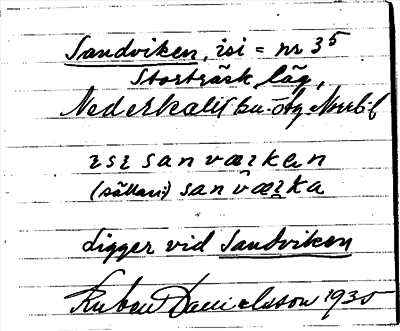 Sandviken, isi = nr 35
Storträsk, läg,
Nederkalix
ɪsɪ sanvæɪkan
(sällan:) sanvæɪka
Ligger vid Sandviken
Ruben Danielsson 1935